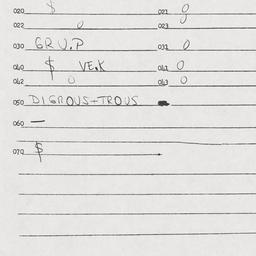 020 $ 021 0
022 0 023 0
030 GRU.P 031 0
040 $ VE.K 041 0
042 0 043 0
050 DIGROUS+TROUS
060 —
070 $